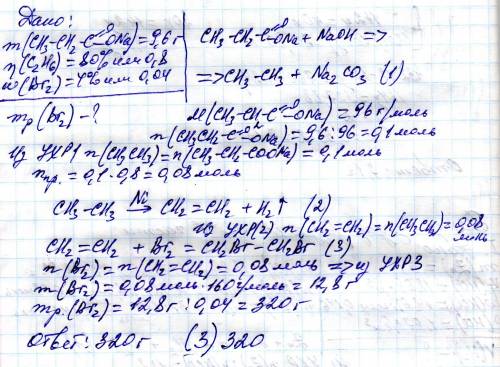 Дано:
m(CH3-CH2-C=O ONa)=9,6 г
η(C2H6)=80% или 0,8
ω(Br2)=4% или 0,04
mр(Br2)-?
CH3-CH2-C=O ONa + NaOH =>
=> CH3-CH3 + Na2CO3 (1)
M(CH3-CH-C=O ONa) = 96 г/моль
n(CH3CH2-C=O ONa)=9,6:96=0,1 моль
Из УХР1 n(CH3CH3)=n(CH3-CH2-COONa)=0,1 моль
nпр.=0,1·0,8=0,08 моль
CH3-CH3 Ni→ CH2=CH2 + H2↑ (2)
из УХР(2) n(CH2=CH2)=n(CH3CH3)=0,08 моль
CH2=CH2 + Br2 = CH2Br-CH2Br (3)
n(Br2)=n(CH2=CH2)=0,08 моль => из УХР3
m(Br2)=0,08 моль·160 г/моль=12,8 г
mр.(Br2)=12,8 г:0,04=320 г
Ответ: 320 г (3) 320